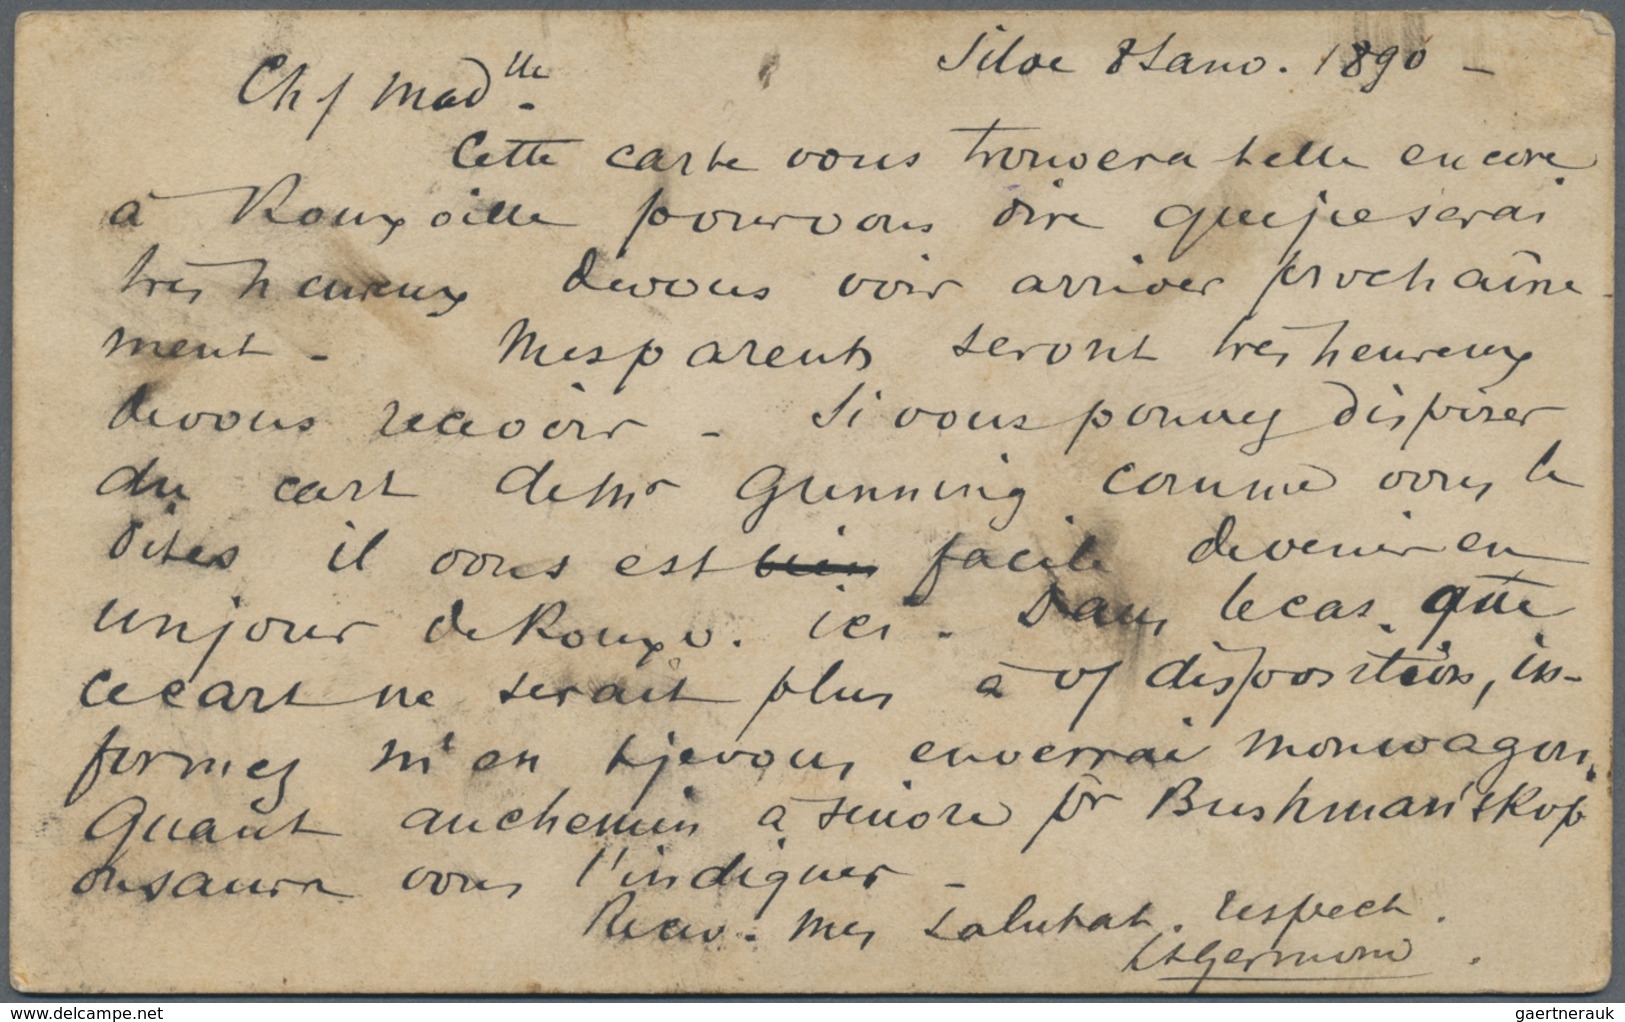 Siloe 8 Janv. 1890 -
Ch / Mad lle.
Cette carte vous trouvera telle encore
à Rouxville pour vous dire que je serai
très heureux de vous voir arriver prochaine-
ment - Mes parents seront très heureux
de vous recevoir - Si vous pouvez disposer
du cart de Mr Gunning comme vous le
dites il vous est bien facile de venir en
un jour de Rouxv. ici. Dans le cas que
ce cart ne serait plus à v/ disposition, in-
formez m'en & je vous enverrai mon wagon.
Quant au chemin à suivre pr Bushman's Kop
on saura vous l'indiquer -
Recev. mes salutat. respect.
Germond.
delcampe.net
gaertnerauk